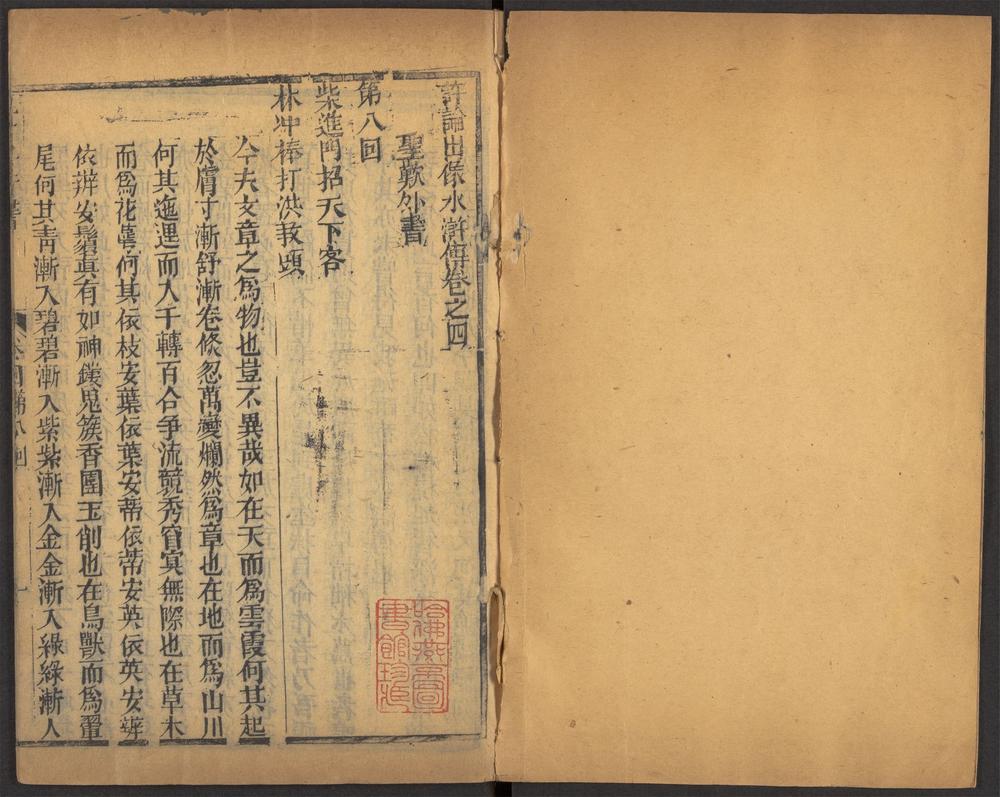 評論出像水滸傳卷之四
聖歎外書
第八回
柴進門招天下客
林冲棒打洪敎頭
今夫文章之爲物也豈不異哉如在天而爲雲霞何其起
於膚寸漸舒漸卷倏忽萬變爛然爲章也在地而爲山川
何其迤邐而入千轉百合爭流競秀窅冥無際也在草木
而爲花萼何其依枝安葉依葉安蒂依蒂安英依英安瓣
依瓣安鬚眞有如神鏤鬼簇香團玉削也在鳥獸而爲翬
尾何其靑漸入碧碧漸入紫紫漸入金金漸入綠綠漸入
卷四第八回
哈佛燕京圖
書館珍藏